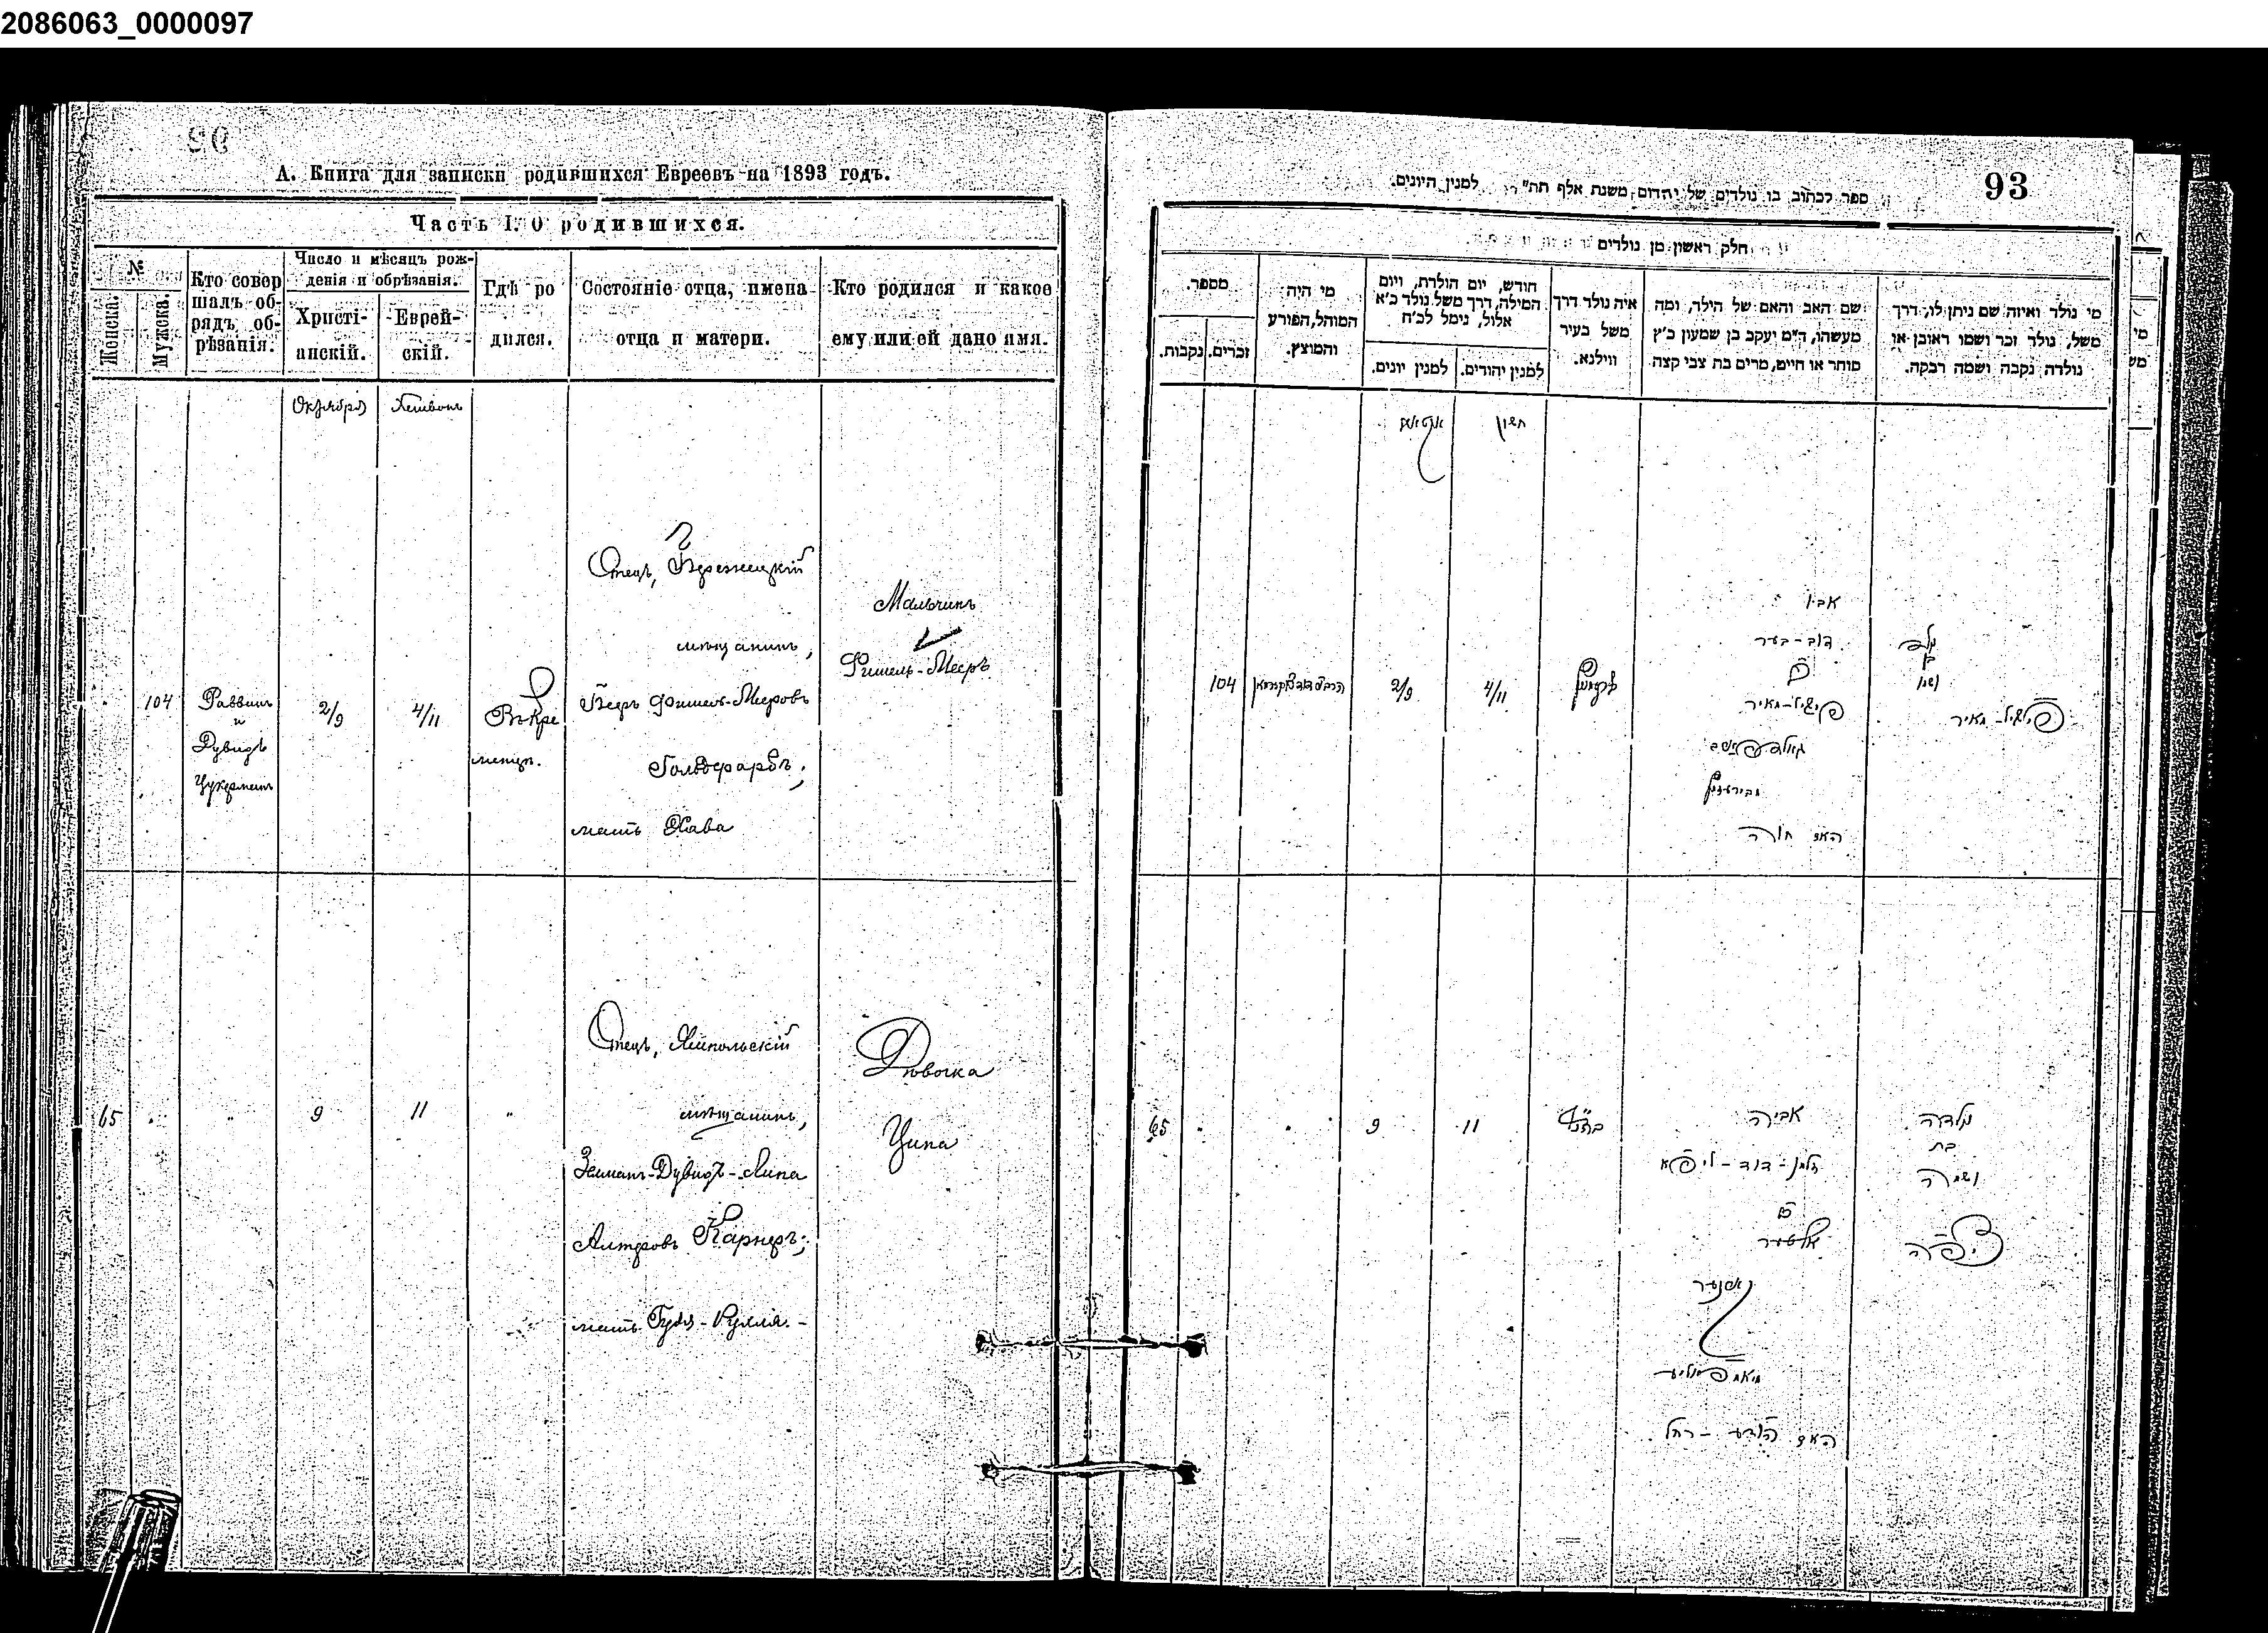 2086063_0000097
А. Книга для записки родившихся Евреевъ на 1893 годъ.
Часть I. О родившихся.
№
Женска.
Мужска.
Кто совер
шалъ об-
рядъ об-
рѣзанія.
Число и мѣсяцъ рож-
денія и обрѣзанія.
Христі-
анскій.
Еврей-
скій.
Гдѣ ро
дился.
Состояніе отца, имена
отца и матери.
Кто родился и какое
ему или ей дано имя.
Октября
Хешвонъ
104
Раввинъ
и
Дувидъ
Цукерманъ
2/9
4/11
Въ Кре
менцѣ.
Отецъ,
мѣщанинъ,
Беръ Фишель-Мееровъ
Гольдфарбъ;
мать Хава
Мальчикъ
Фишель-Мееръ
65
"
9
11
"
Отецъ, Ямпольскій
мѣщанинъ,
Зельманъ-Дувидъ-Липа
Алтеровъ Карнеръ;
мать
Дѣвочка
Ципа
93
ספר לכתוב בו נולדים של יהדום משנת אלף תת" למנין היונים.
חלק ראשון מן נולדים
מספר.
זכרים.
נקבות.
מי היה
המוהל, הפורע
והמוצץ.
חודש, יום הולדת, ויום
המילה, דרך משל נולד כ'א
אלול, נימל לכ'ח
למנין יונים.
למנין יהודים.
איה נולד דרך
משל בעיר
ווילנא.
שם האב והאם של הילד, ומה
מעשהו, ד"מ יעקב בן שמעון כ'ץ
סוחר או חיים, מרים בת צבי קצה
מי נולד ואיזה שם ניתן לו, דרך
משל, נולד זכר ושמו ראובן או
נולדה נקבה ושמה רבקה.
חשון
104
2/9
4/11
אביו
דוב-בער
ב"ר
פישיל-מאיר
גאלדפארב
האם חוה
נולד
בן
ושמו
פישיל-מאיר
65
9
11
אביה
זלמן-דוד-ליפא
ב"ר
אלטער
קארנער
נולדה
בת
ושמה
ציפה